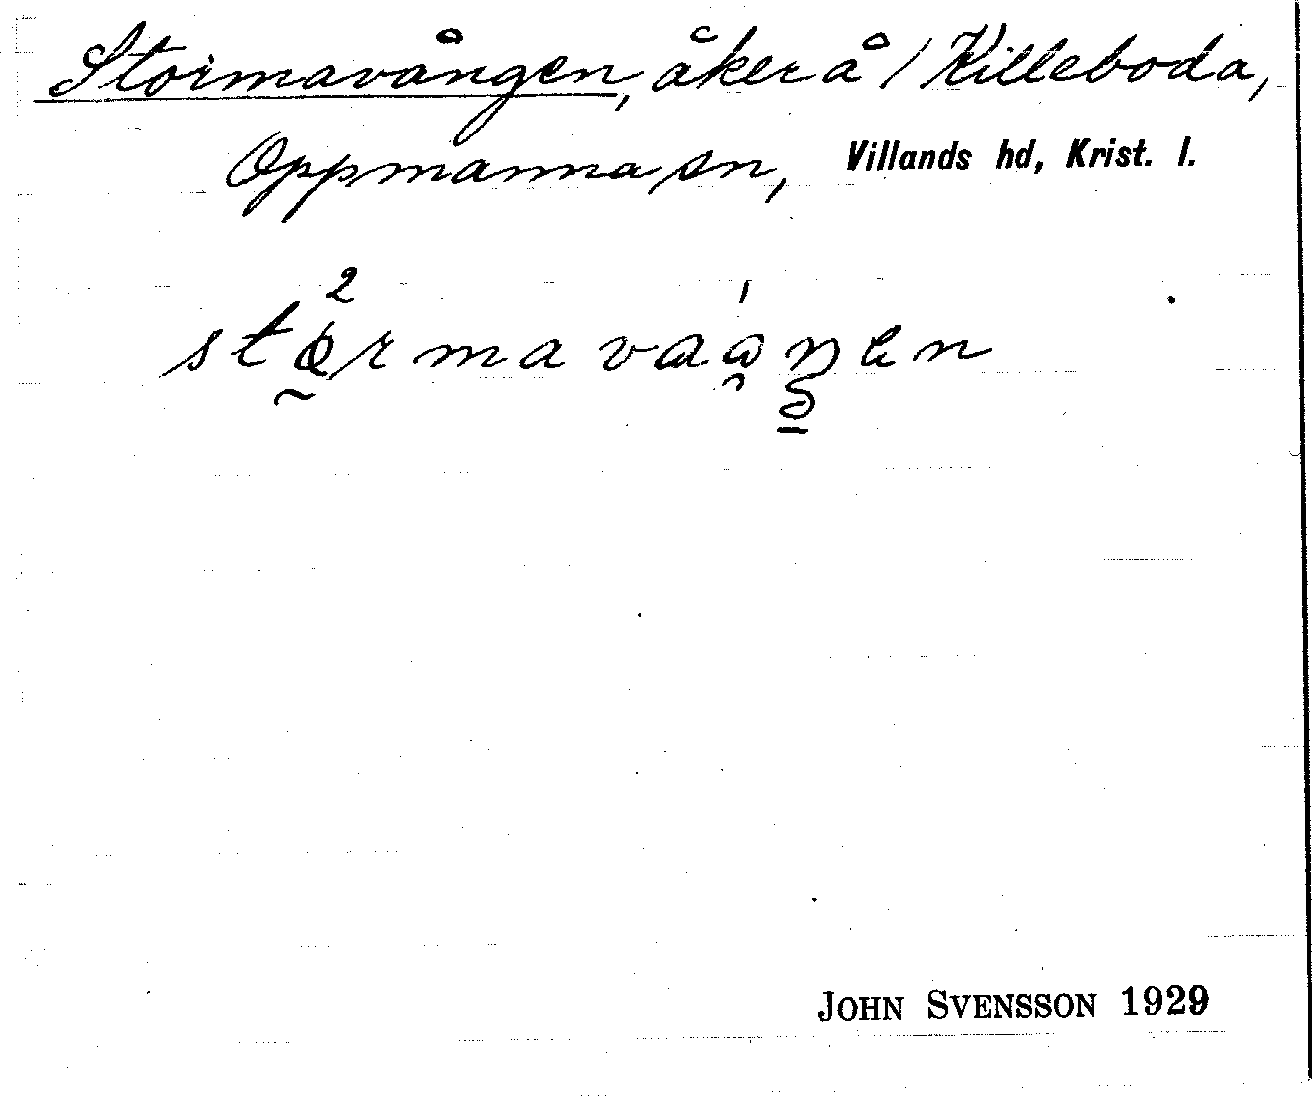 Stormavången, åker å 1 Killeboda,
Oppmanna sn, Villands hd, Krist. l.
JOHN SVENSSON 1929